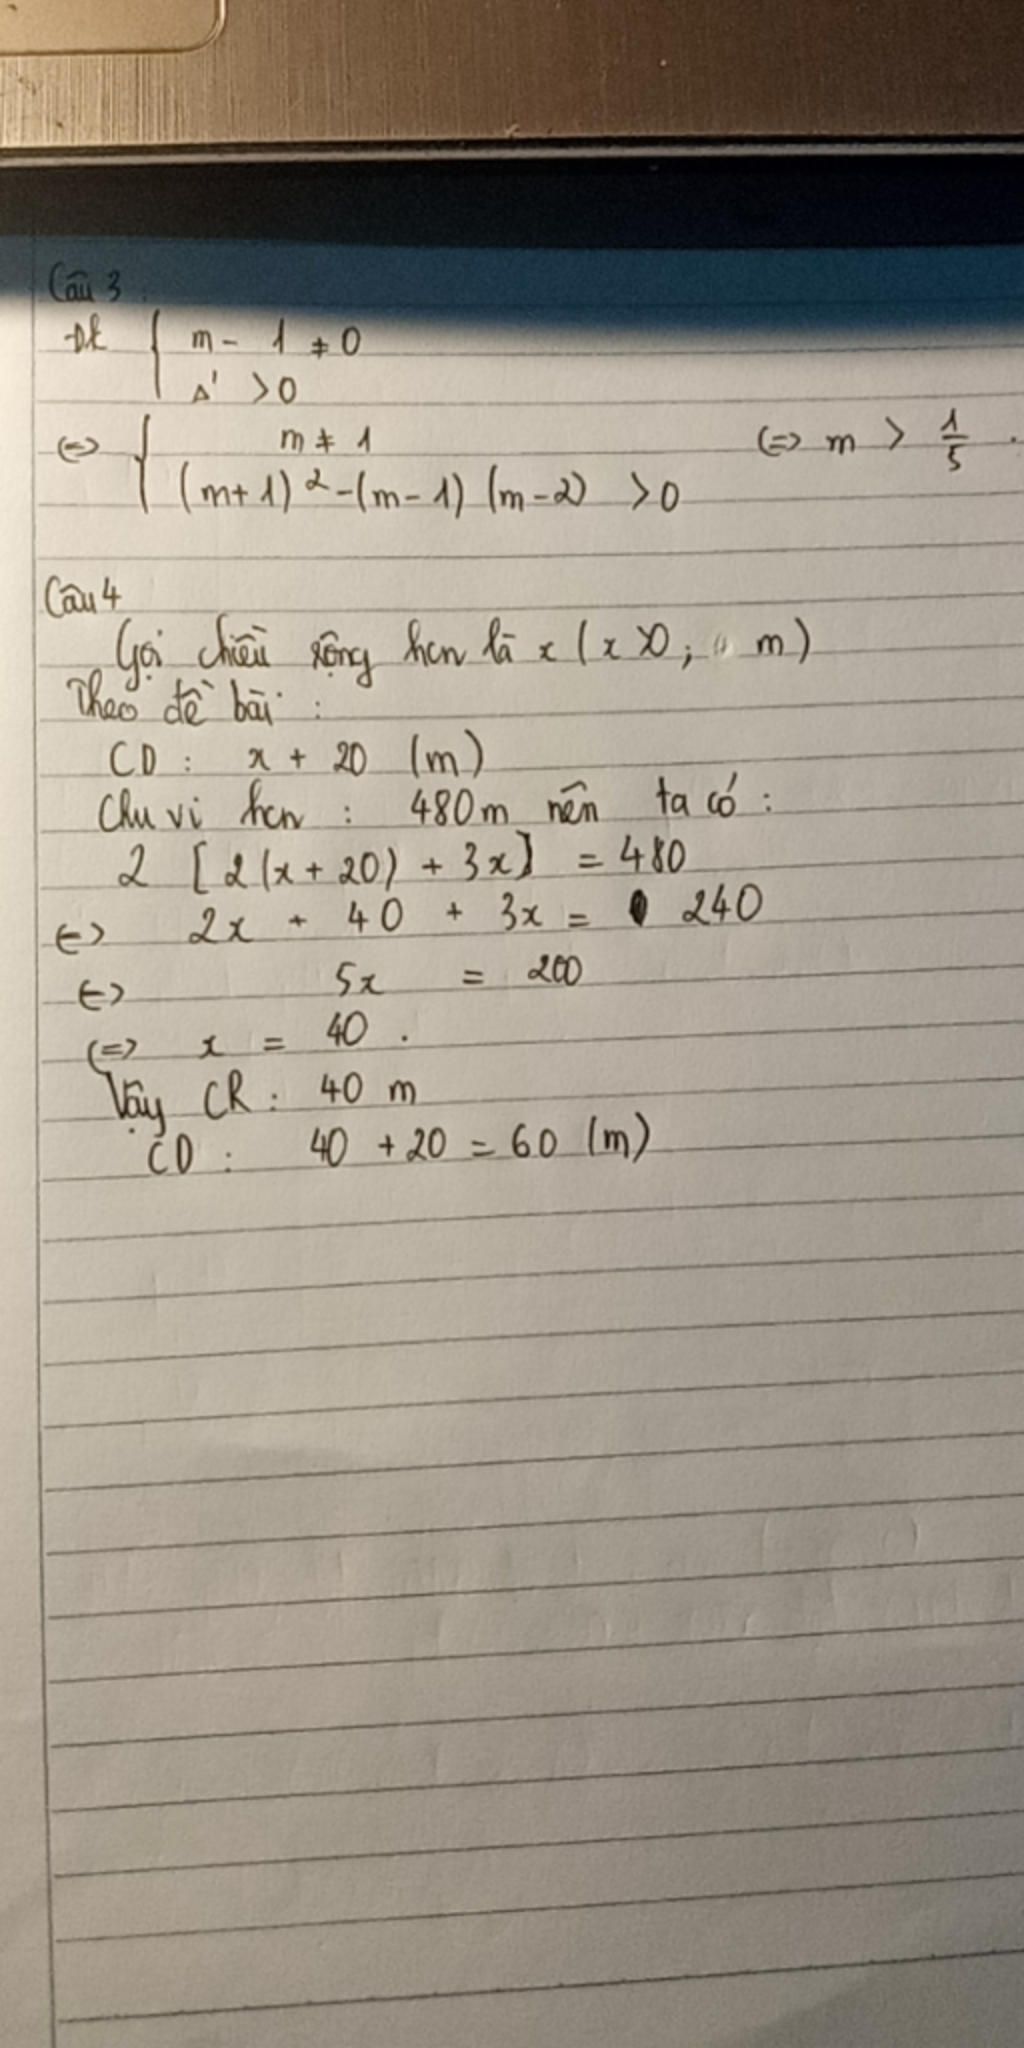 Câu 3
Đk { m - 1 ≠ 0
Δ' > 0
<=> { m ≠ 1
(m+1)² - (m-1) (m-2) > 0 <=> m > 1/5 .
Câu 4
Gọi chiều rộng hcn là x (x > 0 ; m)
Theo đề bài :
CD : x + 20 (m)
Chu vi hcn : 480m nên ta có :
2 [2(x + 20) + 3x] = 480
<=> 2x + 40 + 3x = 240
<=> 5x = 200
<=> x = 40 .
Vậy CR : 40 m
CD : 40 + 20 = 60 (m)